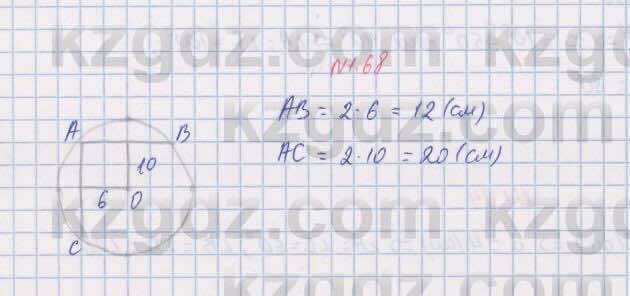 kzgdz.com
N1.68
A
B
10
6 0
C
AB = 2·6 = 12 (см)
AC = 2·10 = 20 (см)
kzgdz.com
kzgdz.com
kzgdz.com